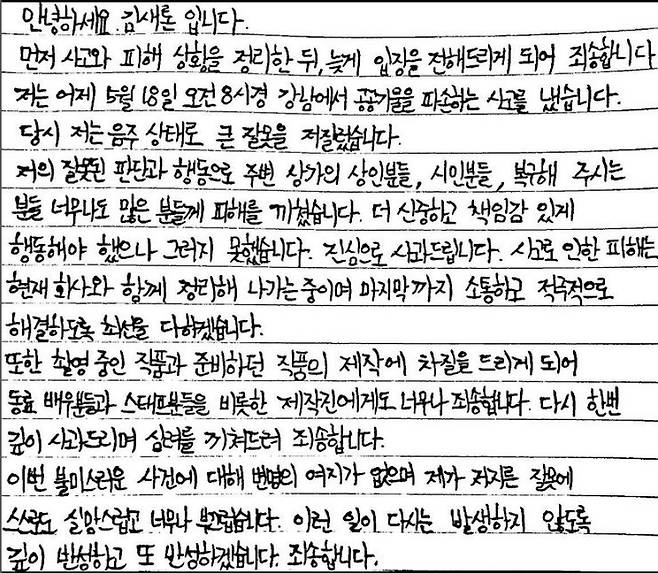 안녕하세요. 김새론 입니다.
먼저 사고와 피해 상황을 정리한 뒤, 늦게 입장을 전해드리게 되어 죄송합니다
저는 어제 5월 18일 오전 8시경 강남에서 공공기물을 파손하는 사고를 냈습니다.
당시 저는 음주 상태로 큰 잘못을 저질렀습니다.
저의 잘못된 판단과 행동으로 주변 상가의 상인분들, 시민분들, 복구해 주시는
분들 너무나도 많은 분들께 피해를 끼쳤습니다. 더 신중하고 책임감 있게
행동해야 했으나 그러지 못했습니다. 진심으로 사과드립니다. 사고로 인한 피해는
현재 회사와 함께 정리해 나가는 중이며 마지막까지 소통하고 적극적으로
해결하도록 최선을 다하겠습니다.
또한 촬영 중인 작품과 준비하던 작품의 제작에 차질을 드리게 되어
동료 배우분들과 스태프분들을 비롯한 제작진에게도 너무나 죄송합니다. 다시 한번
깊이 사과드리며 심려를 끼쳐드려 죄송합니다.
이번 불미스러운 사건에 대해 변명의 여지가 없으며 제가 저지른 잘못에
스스로도 실망스럽고 너무나 부끄럽습니다. 이런 일이 다시는 발생하지 않도록
깊이 반성하고 또 반성하겠습니다. 죄송합니다.